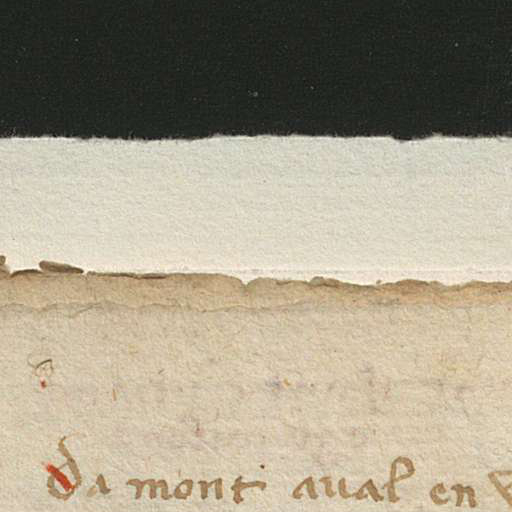 da mont aual en